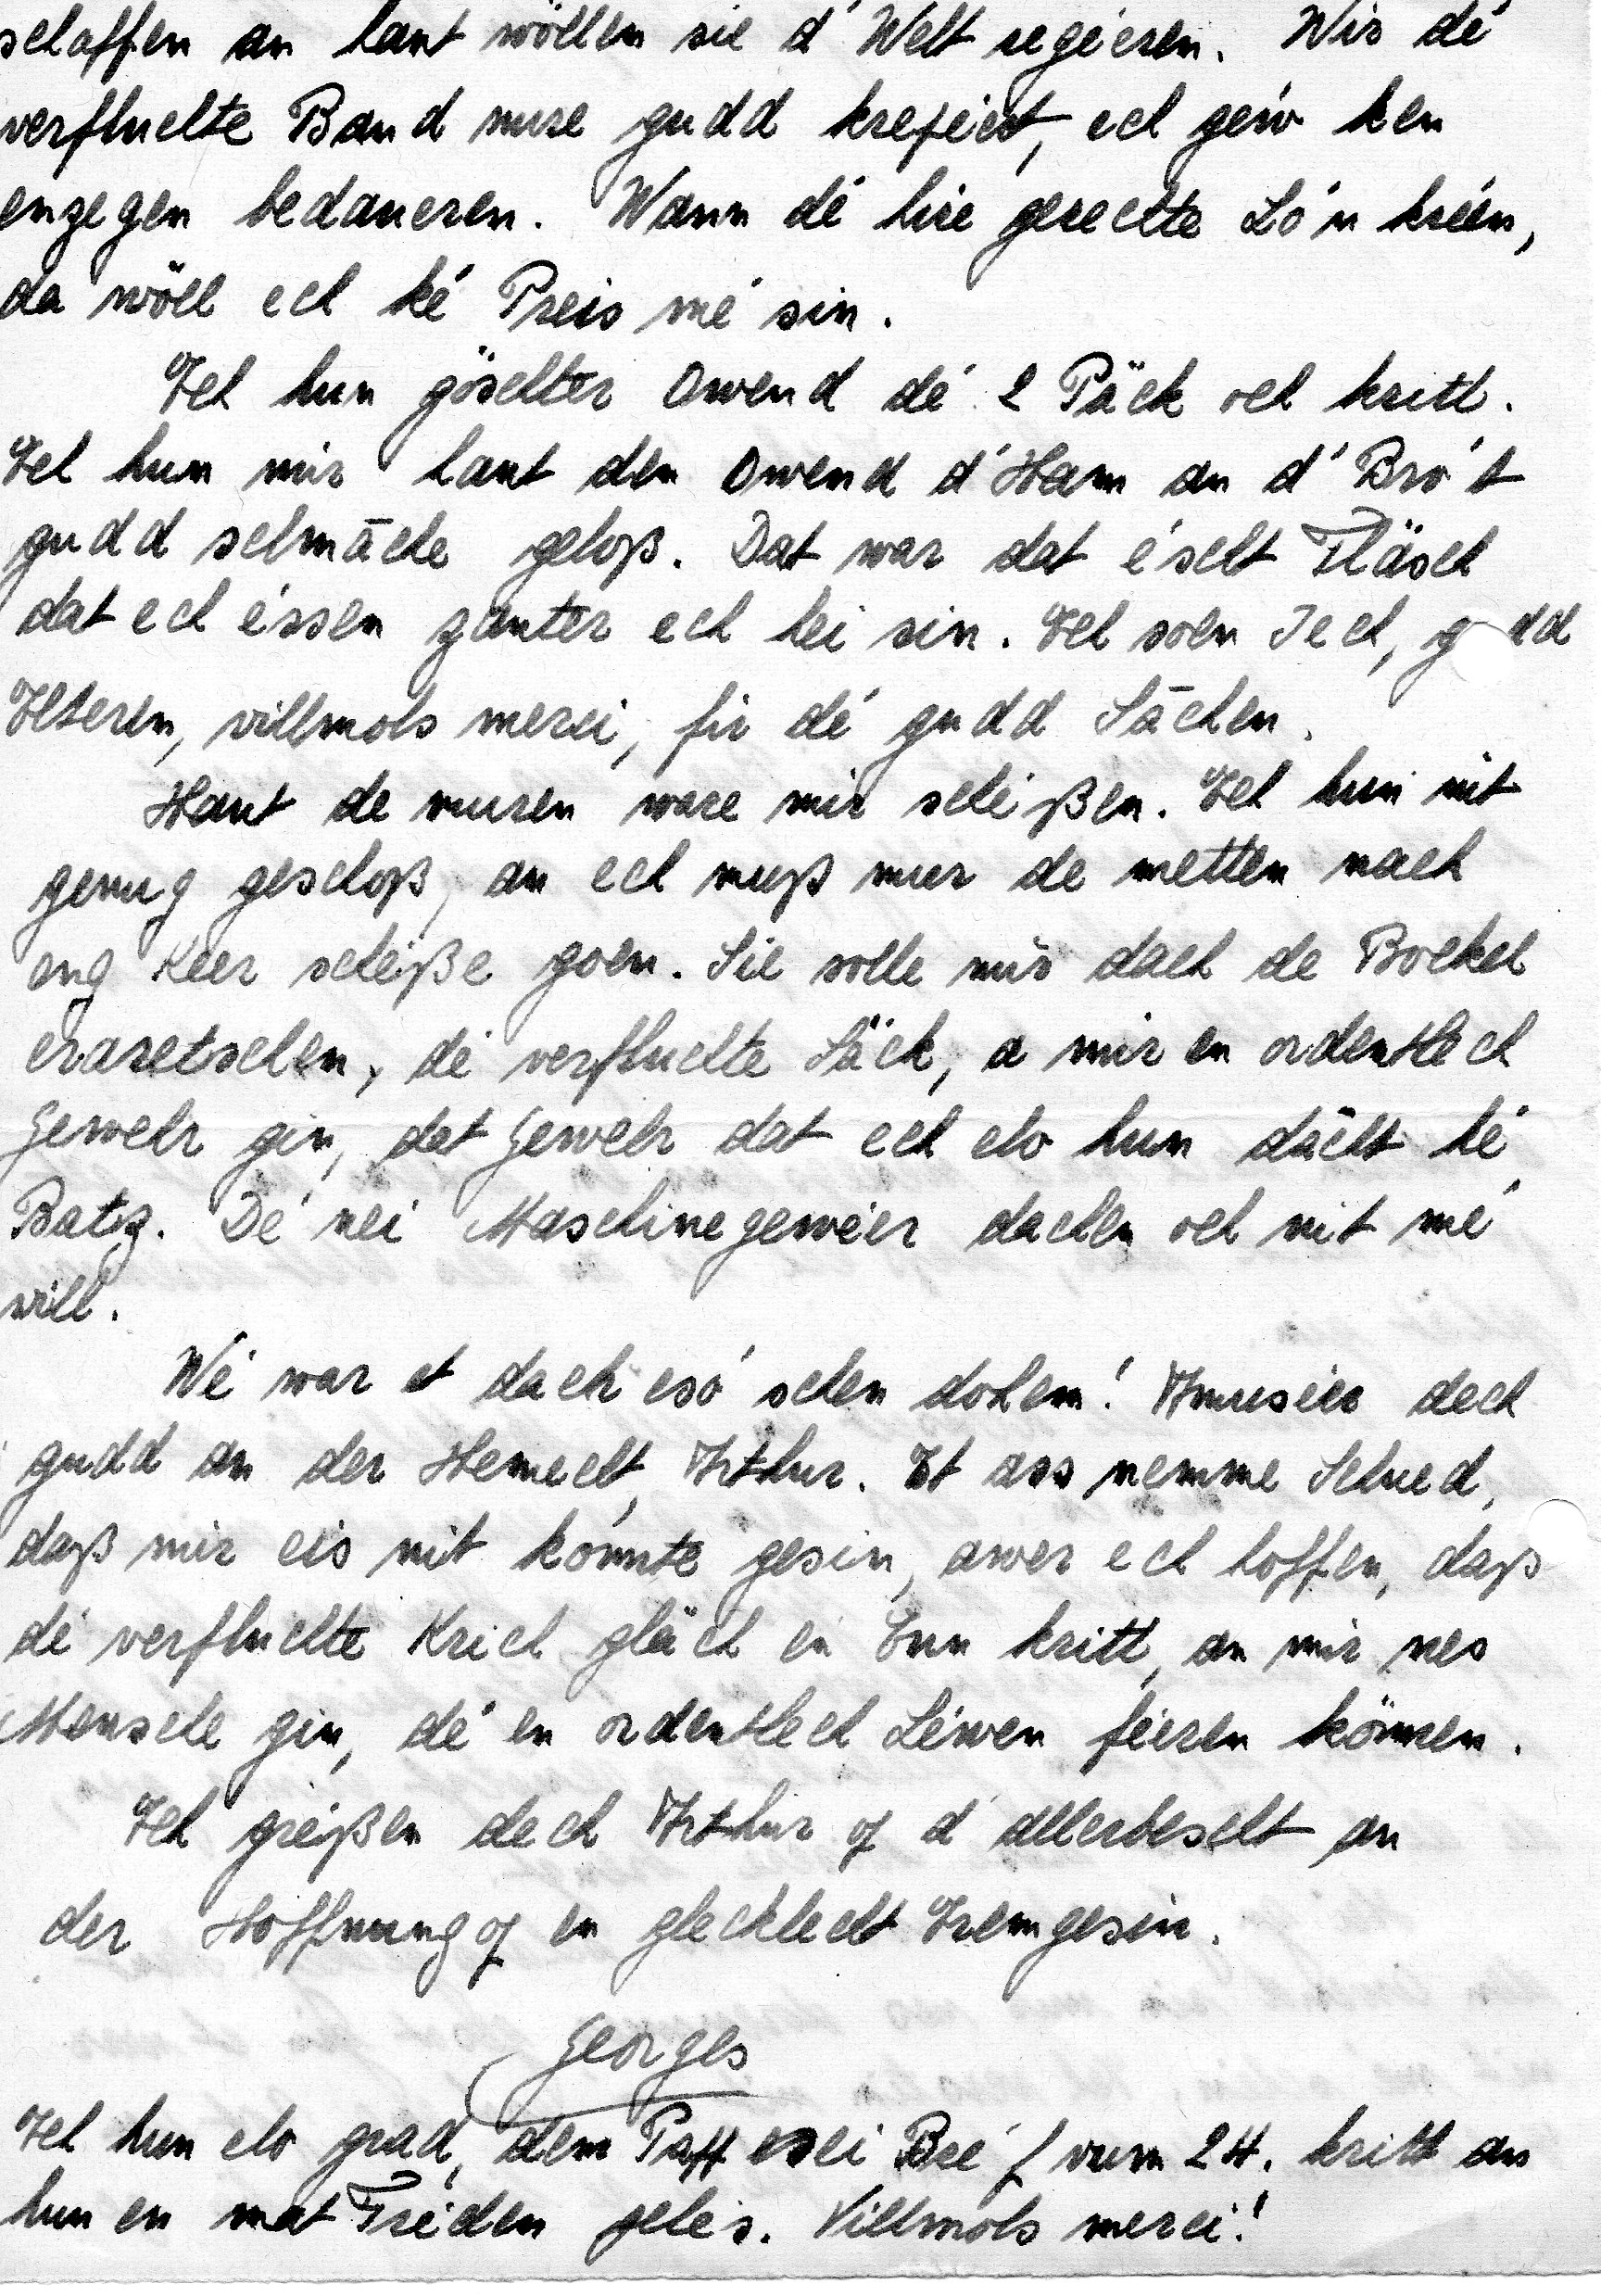 schaffen an haut wöllen sie d'Welt regéieren. Wir dé
verfluchte Band nure gudd krepéiert, ech géiw ken
enzegen bedaueren. Wann dé hire gerechte Lo'n kréen,
da wöll ech ké Preis mé sin.
Ech hun göschter Owend dé 2 Päck och kritt.
Ech hun mir haut den Owend d'Ham an d'Bro't
gudd schmāche geloß. Dat war dat éscht Fläsch
dat ech éssen zanter ech hei sin. Ech soen Iech, g dd
Elteren, villmols merci, fir dé gudd Sāchen.
Haut de muren ware mir schéißen. Ech hun nit
genug geschoß, an ech muß muer de metten nach
eng Keer schéiße goen. Sie solle mir dach de Bockel
eraretschen, dé verfluchte Säck, a mir en ordentlech
Gewehr gin, dat Gewehr dat ech elo hun dācht ké
Batz. Dé nei Maschinegewéier dachen och nit mé
vill.
Wé war et dach eso' schen dohem! Amuséer dech
gudd an der Hemecht, Arthur. Et ass nemme Schued,
daß mir eis nit konnte gesin, awer ech hoffen, daß
dé verfluchte Krich gläch en Enn kritt, an mir nes
Mensche gin, dé en ordentlech Léwen féieren können.
Ech gréißen dech Arthur of d'allerbescht an
der Hoffnung of en glecklecht Eremgesin.
Georges
Ech hun elo grad, dem Paff esei Bré f vum 24. kritt an
hun en mat Fréden geles. Villmols merci!